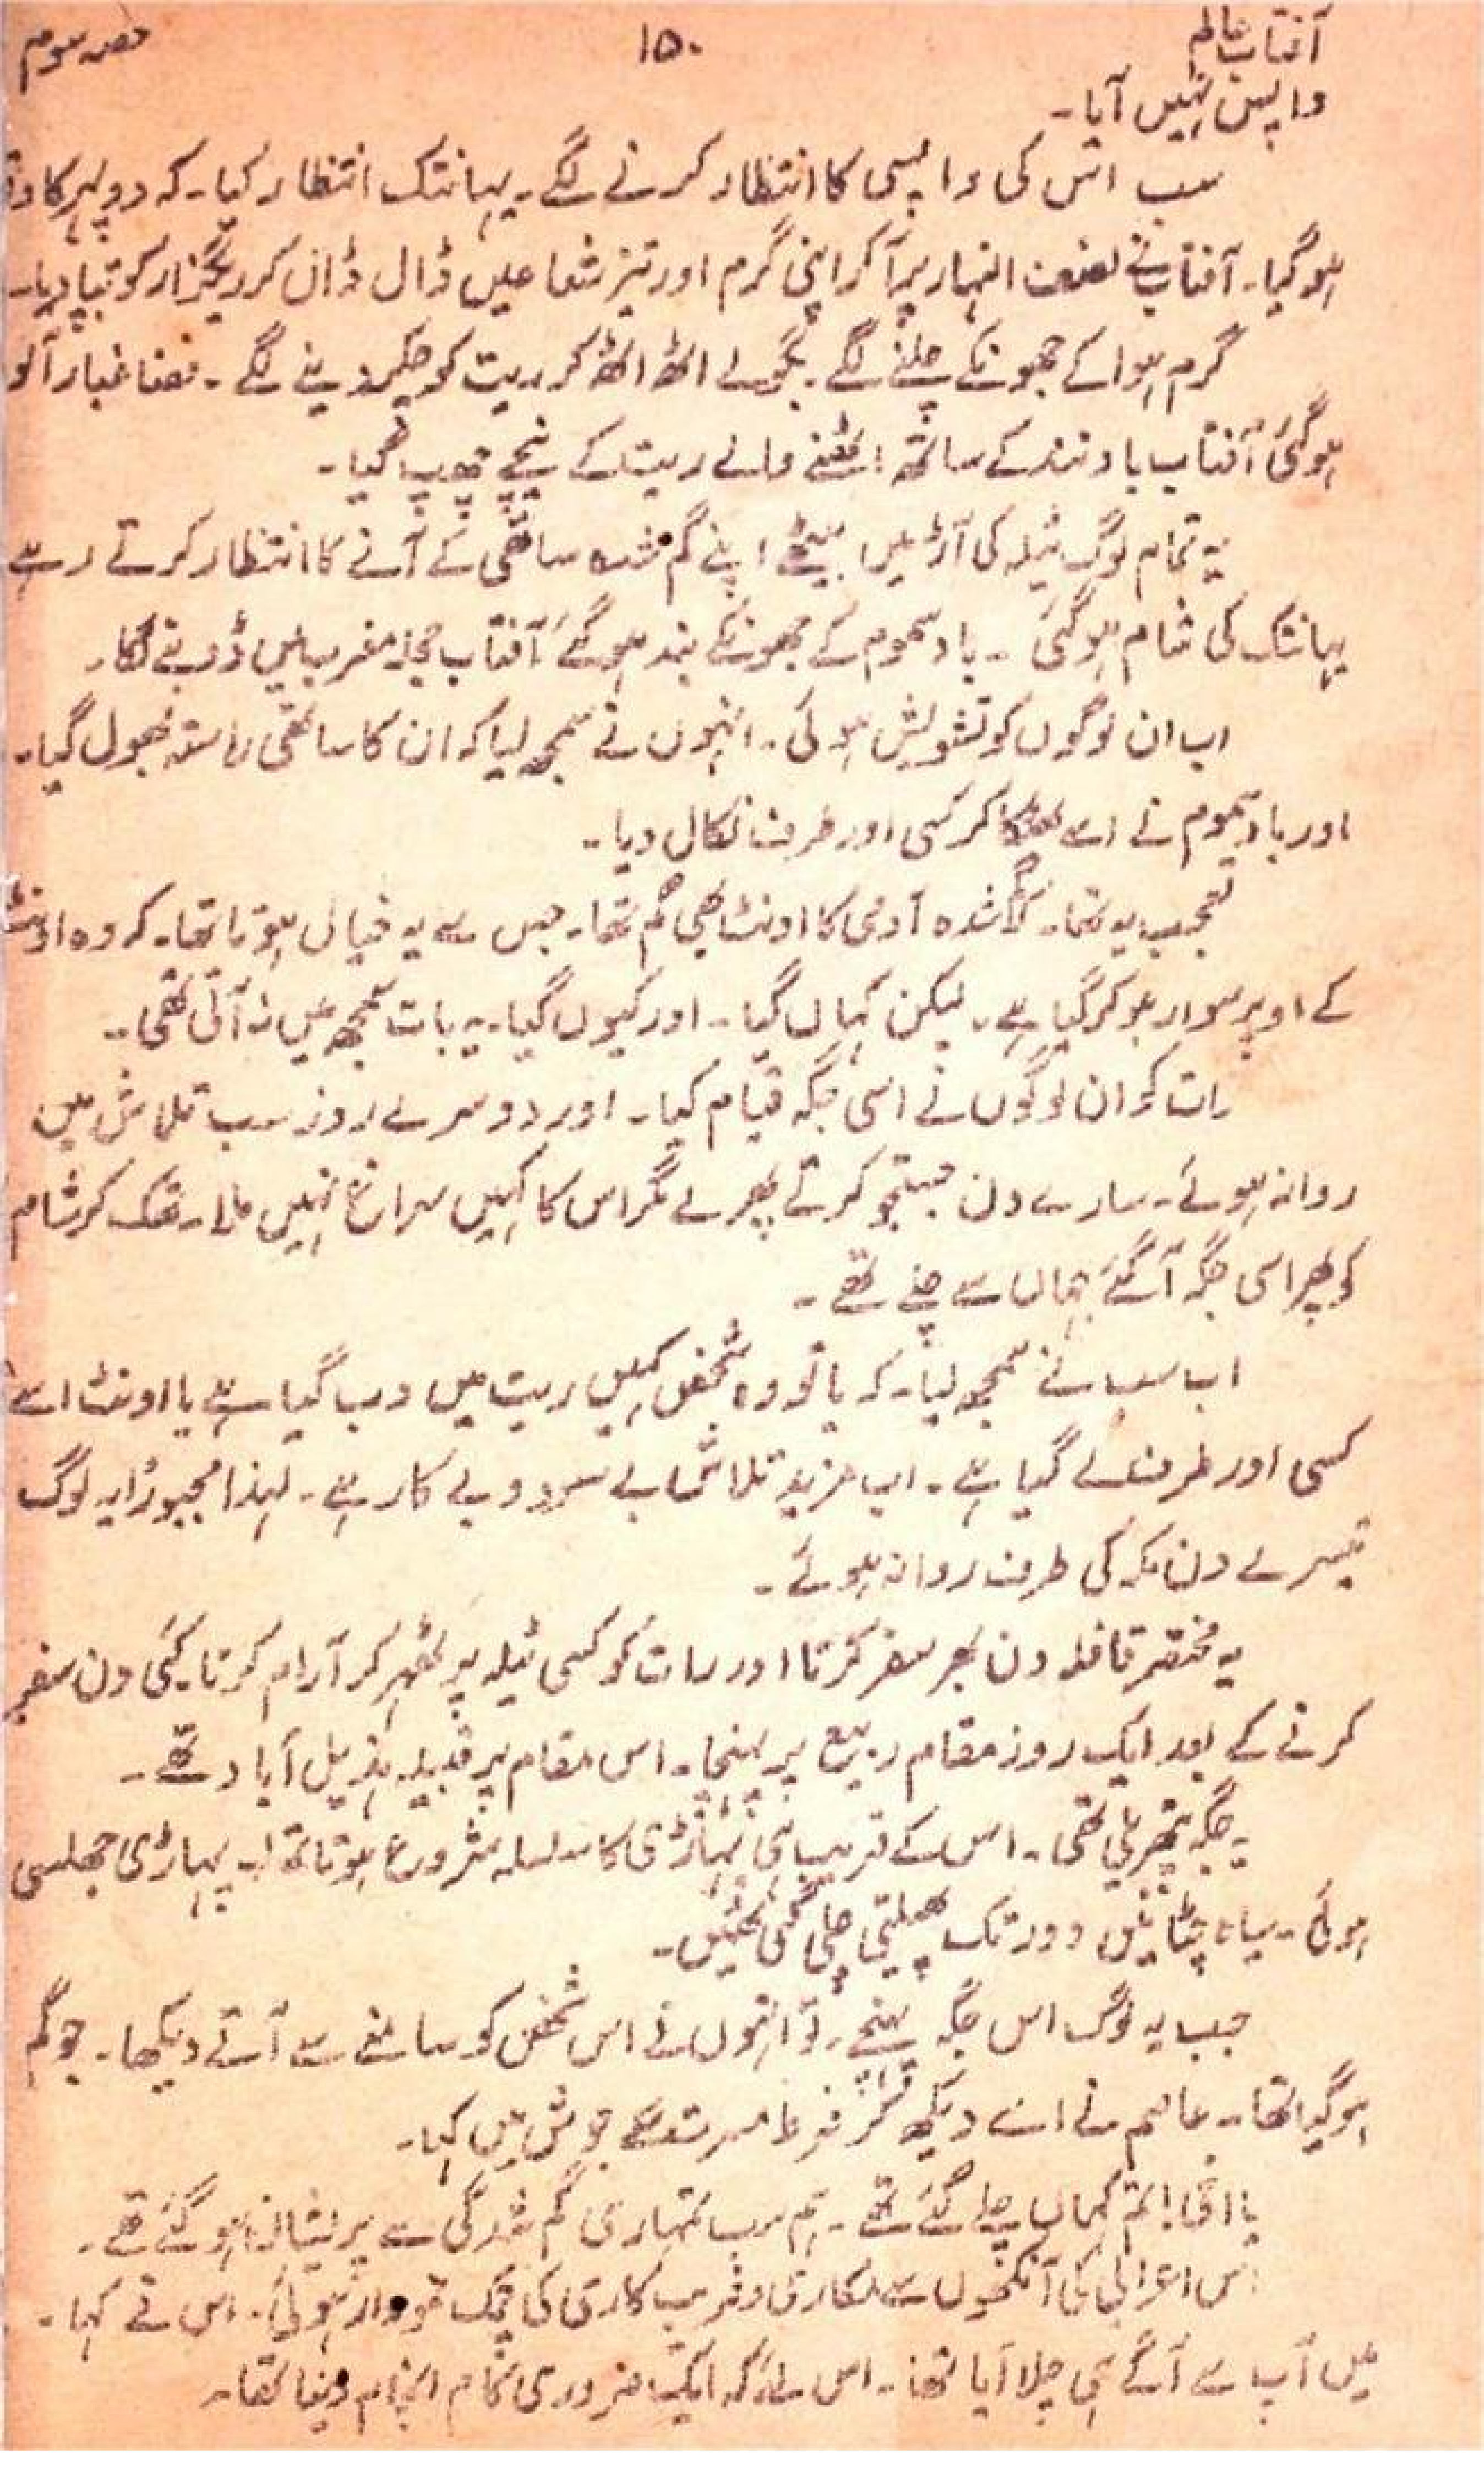 آفتاب عالم
۱۵۰
حصہ سوم
واپس نہیں آیا۔
سب اس کی واپسی کا انتظار کرنے لگے۔ یہانتک انتظار کیا۔ کہ دوپہر کا وقت
ہوگیا۔ آفتاب نے نصف النہار پر آکر اپنی گرم اور تیز شعاعیں ڈال ڈال کر ریگزار کو تپا دیا۔
گرم ہوا کے جھونکے چلنے لگے۔ بگولے اٹھ اٹھ کر ریت کو چکر دینے لگے۔ فضا غبار آلو
ہوگئی آفتاب باد تند کے ساتھ اٹھنے والے ریت کے نیچے چھپ گیا۔
یہ تمام لوگ ٹیلہ کی آڑ میں بیٹھے اپنے گم شدہ ساتھی کے آنے کا انتظار کرتے رہے
یہانتک کی شام ہوگئی۔ باد سموم کے جھونکے بند ہوگئے آفتاب حجلہ مغرب میں ڈوبنے لگا۔
اب ان لوگوں کو تشویش ہوئی۔ انہوں نے سمجھ لیا کہ ان کا ساتھی راستہ بھول گیا۔
اور باد سموم نے اسے بھٹکا کر کسی اور طرف نکال دیا۔
تعجب یہ تھا۔ گمشدہ آدمی کا اونٹ بھی گم تھا۔ جس سے یہ خیال ہوتا تھا۔ کہ وہ اونٹ
کے اوپر سوار ہوکر گیا ہے۔ لیکن کہاں گیا۔ اور کیوں گیا۔ یہ بات سمجھ میں نہ آتی تھی۔
رات کو ان لوگوں نے اسی جگہ قیام کیا۔ اور دوسرے روز سب تلاش میں
روانہ ہوئے۔ سارے دن جستجو کرتے پھرے مگر اس کا کہیں سراغ نہیں ملا۔ تھک کر شام
کو پھر اسی جگہ آگئے جہاں سے چلے تھے۔
اب سب نے سمجھ لیا۔ کہ یا تو وہ شخص کہیں ریت میں دب گیا ہے یا اونٹ اسے
کسی اور طرف لے گیا ہے۔ اب مزید تلاش بے سود و بے کار ہے۔ لہذا مجبوراً یہ لوگ
تیسرے دن مکہ کی طرف روانہ ہوئے۔
یہ مختصر قافلہ دن بھر سفر کرتا اور رات کو کسی ٹیلہ پر ٹھہر کر آرام کرتا کئی دن سفر
کرنے کے بعد ایک روز مقام ربیع پر پہنچا۔ اس مقام پر قبیلہ ہذیل آباد تھے۔
یہ جگہ پتھریلی تھی۔ اس کے قریب ہی پہاڑی کا سلسلہ شروع ہوتا تھا۔ یہ پہاڑی جھلسی
ہوئی۔ سیاہ چٹانیں دور تک پھیلتی چلی گئی تھیں۔
جب یہ لوگ اس جگہ پہنچے۔ تو انہوں نے اس شخص کو سامنے سے آتے دیکھا۔ جو گم
ہوگیا تھا۔ عاصم نے اسے دیکھ کر فوط مسرت سے جوش میں کہا۔
یا اخی! تم کہاں چلے گئے تھے۔ ہم سب تمہاری گم شدگی سے پریشان ہوگئے تھے۔
اس اعرابی کی آنکھوں سے مکاری و فریب کاری کی چمک نمودار ہوئی۔ اس نے کہا۔
میں آپ سے آگے ہی چلا آیا تھا۔ اس لئے کہ ایک ضروری کام انجام دینا تھا۔